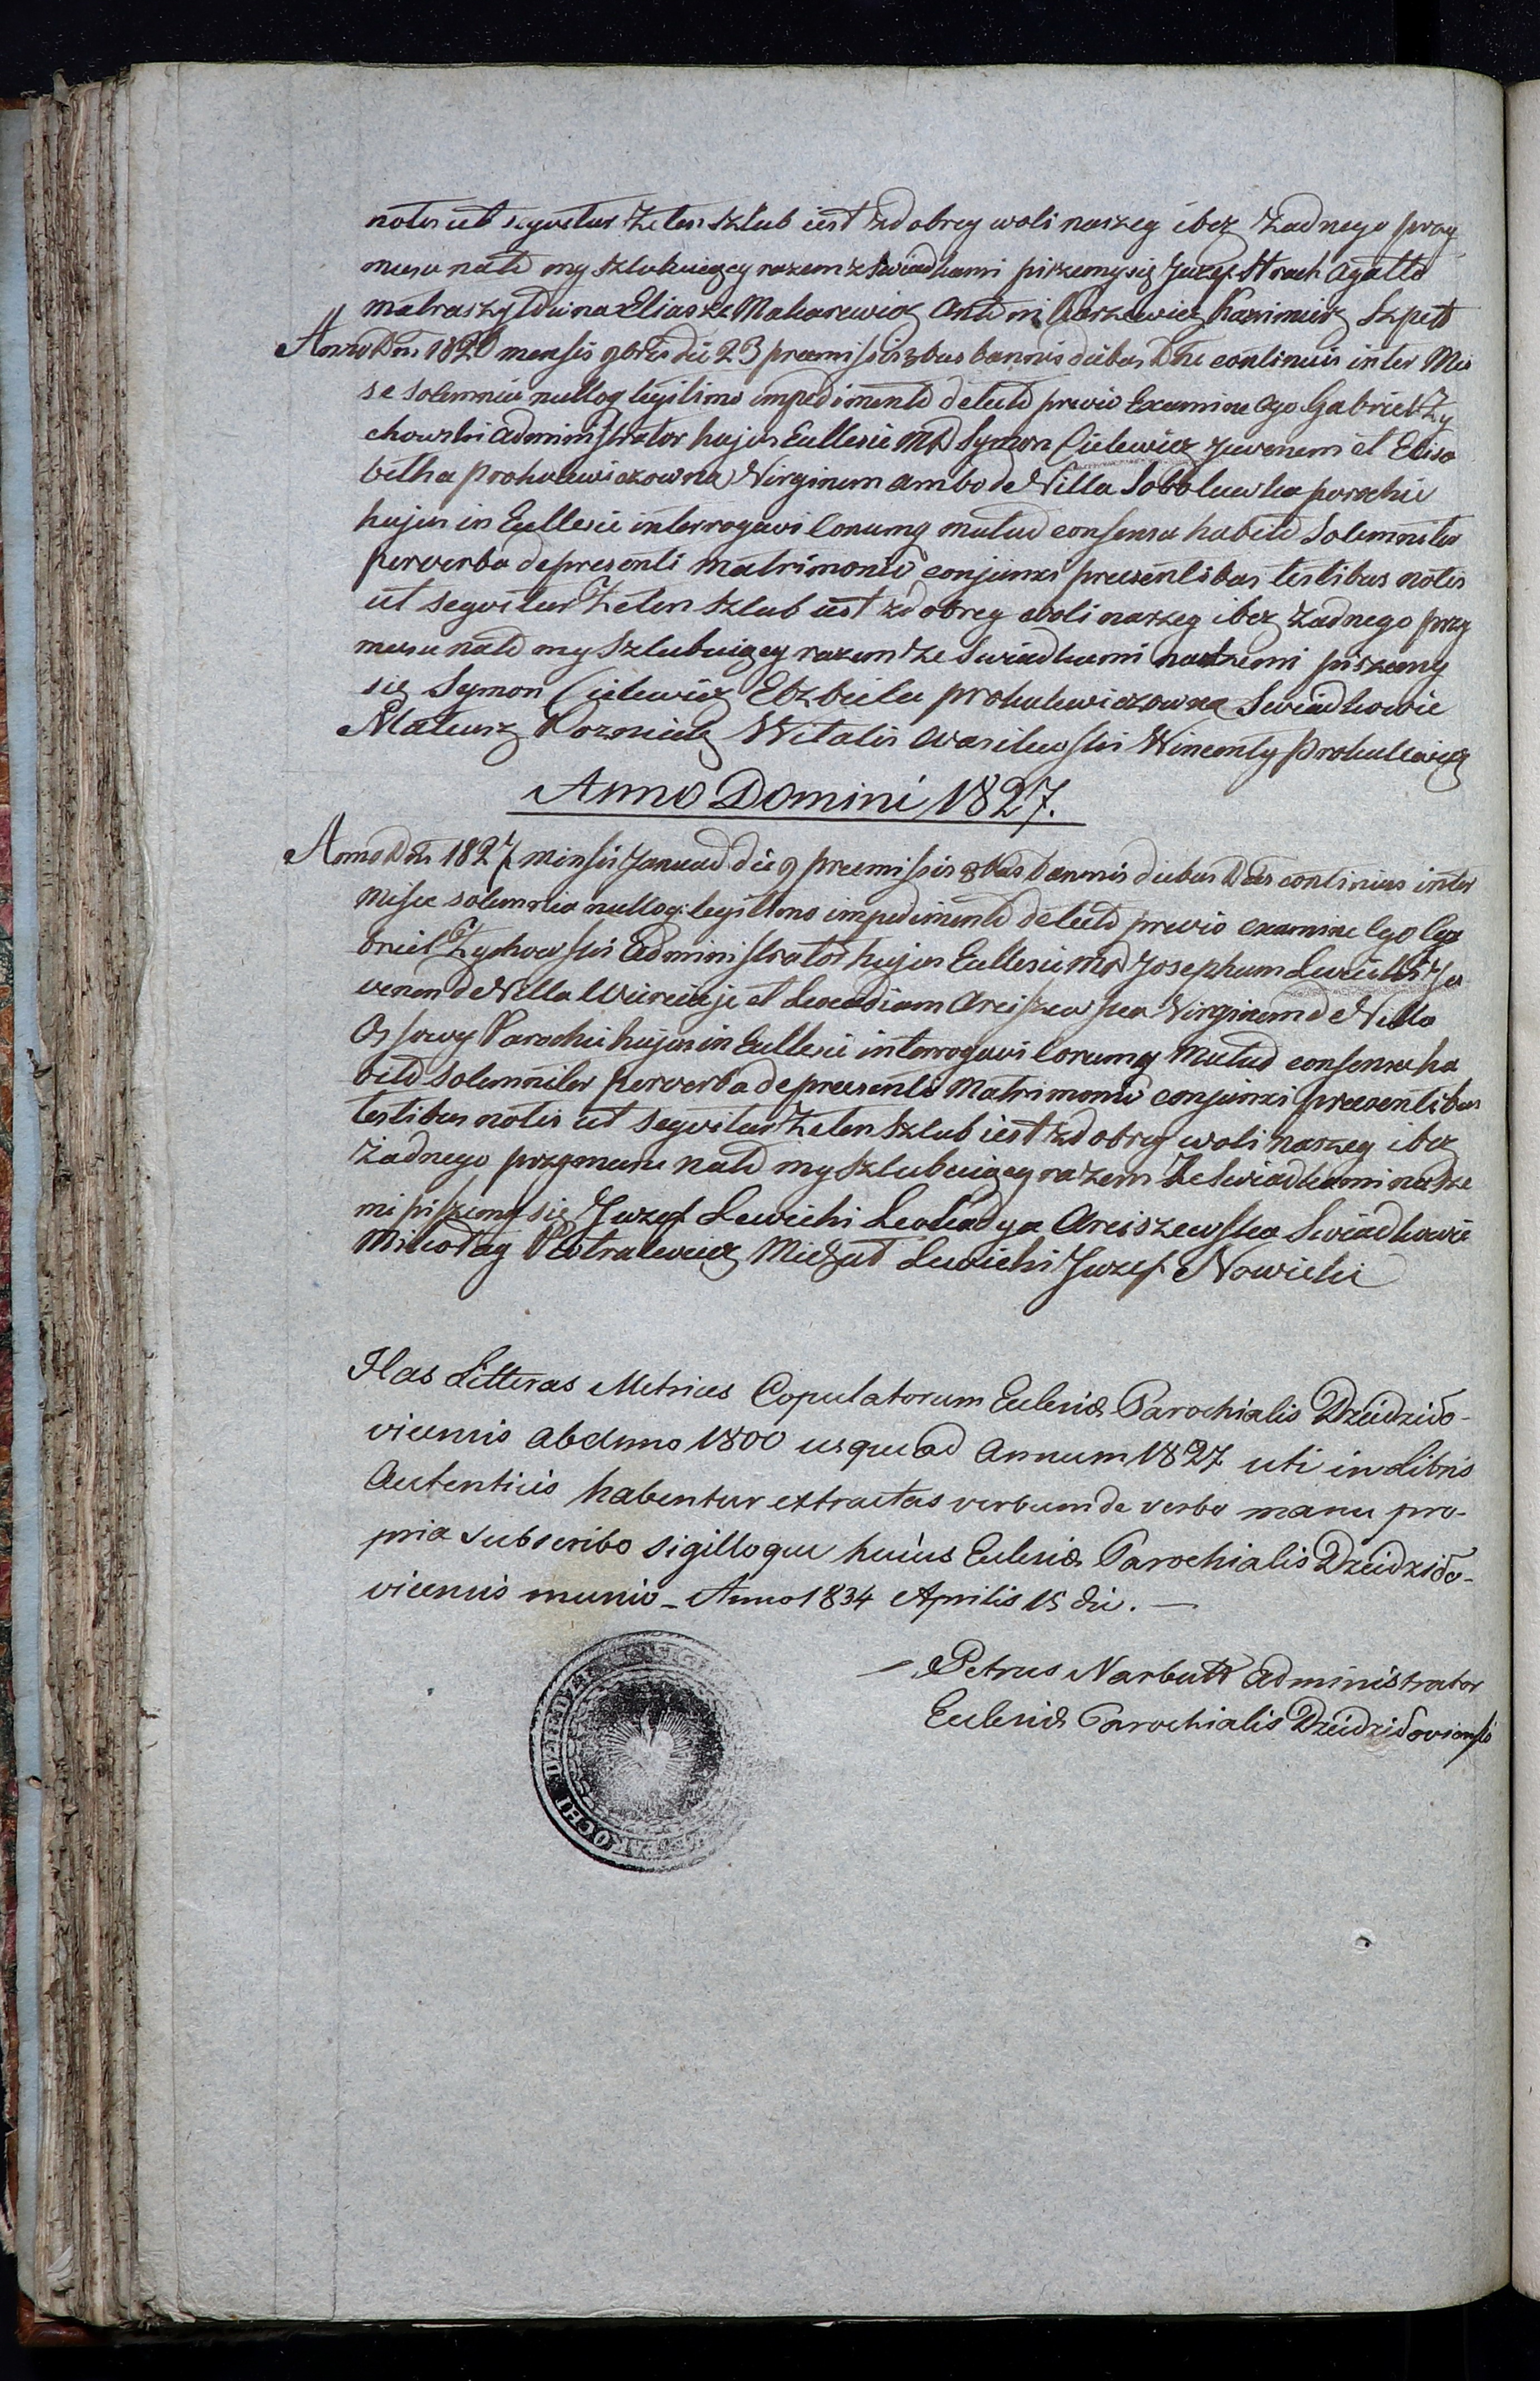 notis ut seqvitur Że ten szlub iest zdobrey woli naszey i bez żadnego przy
musu nato my szlubuiący razem z Swiadkami piszemy się Juzef Strach Agatta
Matraszyłduna Eliasz Makarewicz Antoni Karzewicz Kazimierz Szpett
Anno Dni 1826 mensis 9bris die 23 premissis 3bus bannis diebus Dne continuis inter Mis
se solemnia nulloq legitimo impedimento detecto previo Examine Ego Gabriel Zy
chowski Administrator hujus Ecclesie MD Symon Cielewicz Juvenem et Elisa
betha Prokulewiczowna Virginem ambo de Villa Sobolewka parochie
hujus in Ecclesie interrogavi eorumq mutuo consensu habito Solemniter
per verba de presenti Matrimonio conjunxi presentibus testibus notis
ut seqvitur Że ten szlub iest zdobrey woli naszey i bez żadnego przy
musu nato my Szlubuiący razem ze Swiadkami naszemi piszemy
się Symon Cielewicz Elzbieta Prokulewiczowna Swiadkowie
Mateusz Wozniak Witalis Wasilewski Wincenty Prokulewicz
Anno Domini 1827.
Anno Dni 1827 Mensis Januarii die 9 premissis 3bus bannis diebus Dnis continuis inter
Misse solemnia nulloq: legitimo impedimento detecto previo examine Ego Ga
briel Zychowski Administrator hujus Ecclesie MD Josephum Lewicki Ju
venem de Villa et Leocadiam Arciszewska Virginem de Villa
Ossowy Parochie hujus in Ecclesie interrogavi eorumq Mutuo consensu ha
bito solemniter per verba de presenti Matrimonio conjunxi presentibus
testibus notis ut seqvitur Że ten szlub iest zdobrey woli naszey i bez
Żadnego przymusu nato my szlubuiący razem Ze Swiadkami nasze
mi piszemy się Juzef Lewicki Leokadya Arciszewska Swiadkowie
Mikołay Piotralewicz Michał Lewicki Juzef Nowicki
Has Litteras Metrices Copulatorum Ecclesiæ Parochialis Dzeidzido-
vicensis ab Anno 1800 usque ad Annum 1827 uti in Libris
Autenticis habentur extractas verbum de verbo manu pro-
pria subscribo sigilloque huius Ecclesiæ Parochialis Dzeidzido-
vicensis munio _ Anno 1834 Aprilis 15 die. —
Petrus Narbutt Administrator
Ecclesiæ Parochialis Dzeidzidoviensis